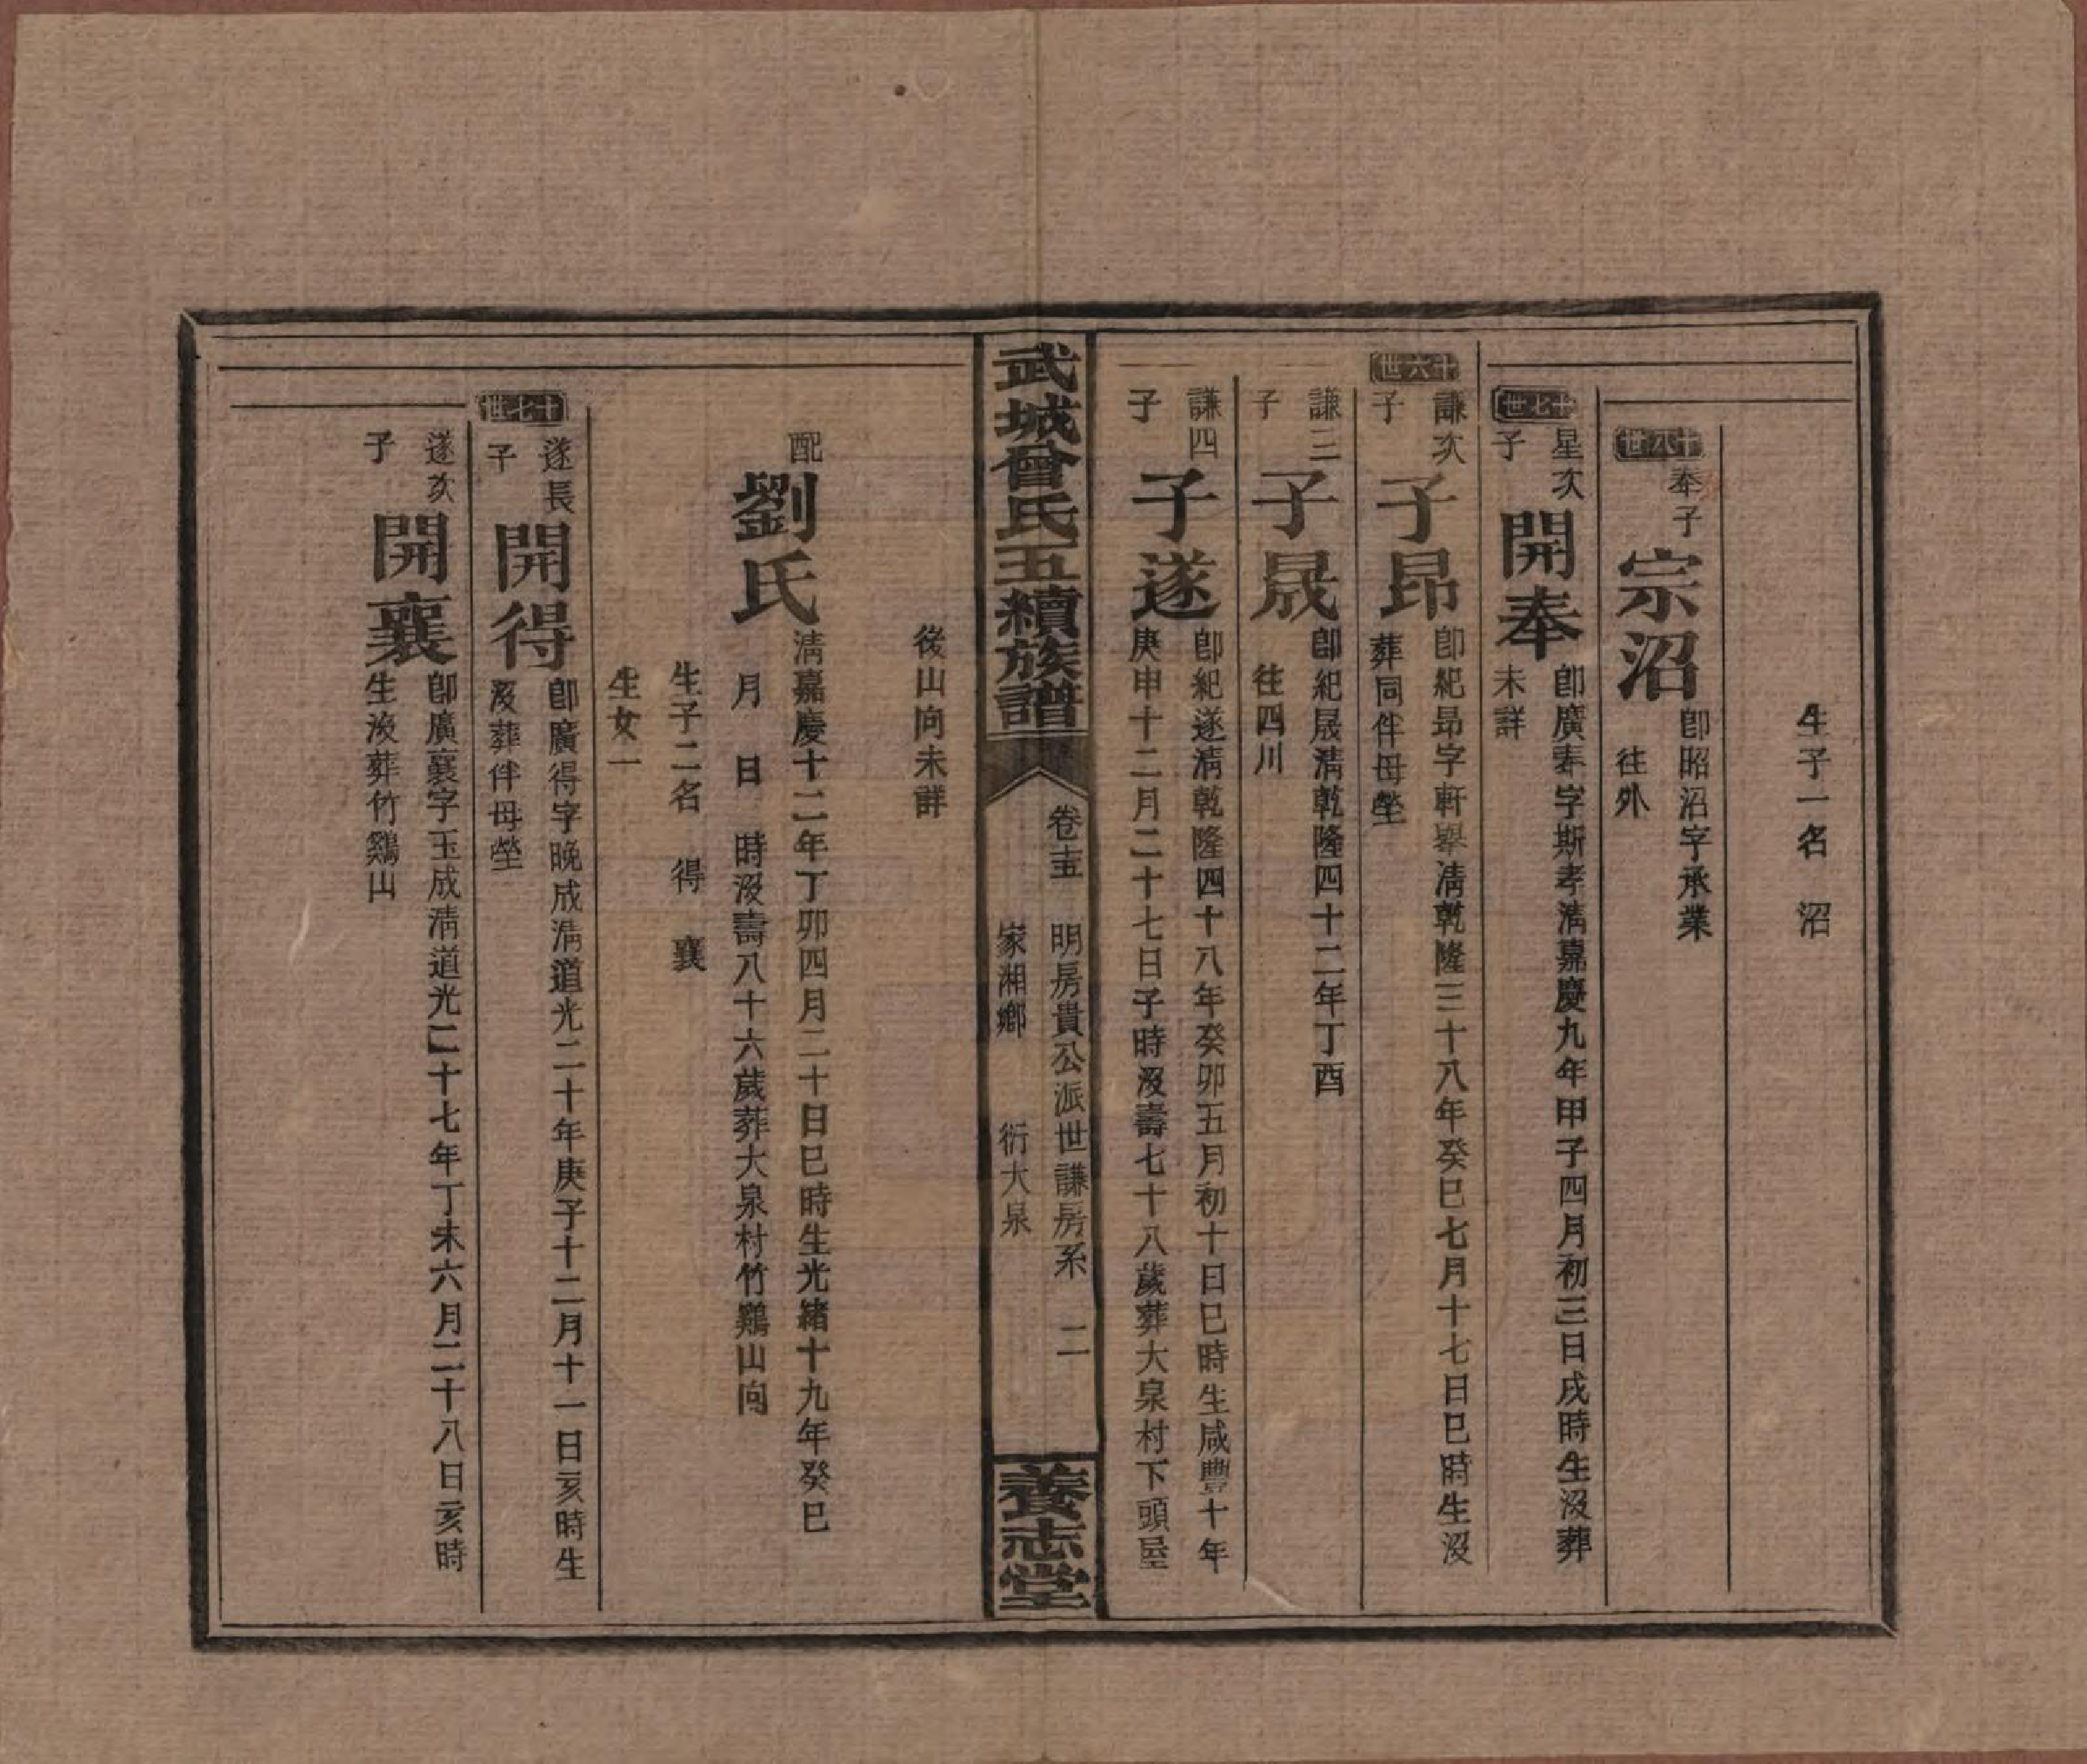 生子一名 沼
十八世
奉子
宗沼
卽昭沼字承業
往外
十七世
星次
子
開奉
卽廣奉字斯孝淸嘉慶九年甲子四月初三日戌時生沒葬
未詳
十六世
謙次
子
子昂
卽紀昂字軒舉淸乾隆三十八年癸巳七月十七日巳時生沒
葬同伴母塋
謙三
子
子晟
卽紀晟淸乾隆四十二年丁酉
往四川
謙四
子
子遂
卽紀遂淸乾隆四十八年癸卯五月初十日巳時生咸豐十年
庚申十二月二十七日子時沒壽七十八歲葬大泉村下頭屋
武城曾氏五續族譜
卷十五
明房貴公派世謙房系 二
家湘鄉 衍大泉
養志堂
後山向未詳
配
劉氏
淸嘉慶十二年丁卯四月二十日巳時生光緖十九年癸巳
月 日 時沒壽八十六歲葬大泉村竹鷄山向
生子二名 得 襄
生女一
十七世
遂長
子
開得
卽廣得字晚成淸道光二十年庚子十二月十一日亥時生
沒葬伴母塋
遂次
子
開襄
卽廣襄字玉成淸道光二十七年丁未六月二十八日亥時
生沒葬竹鷄山